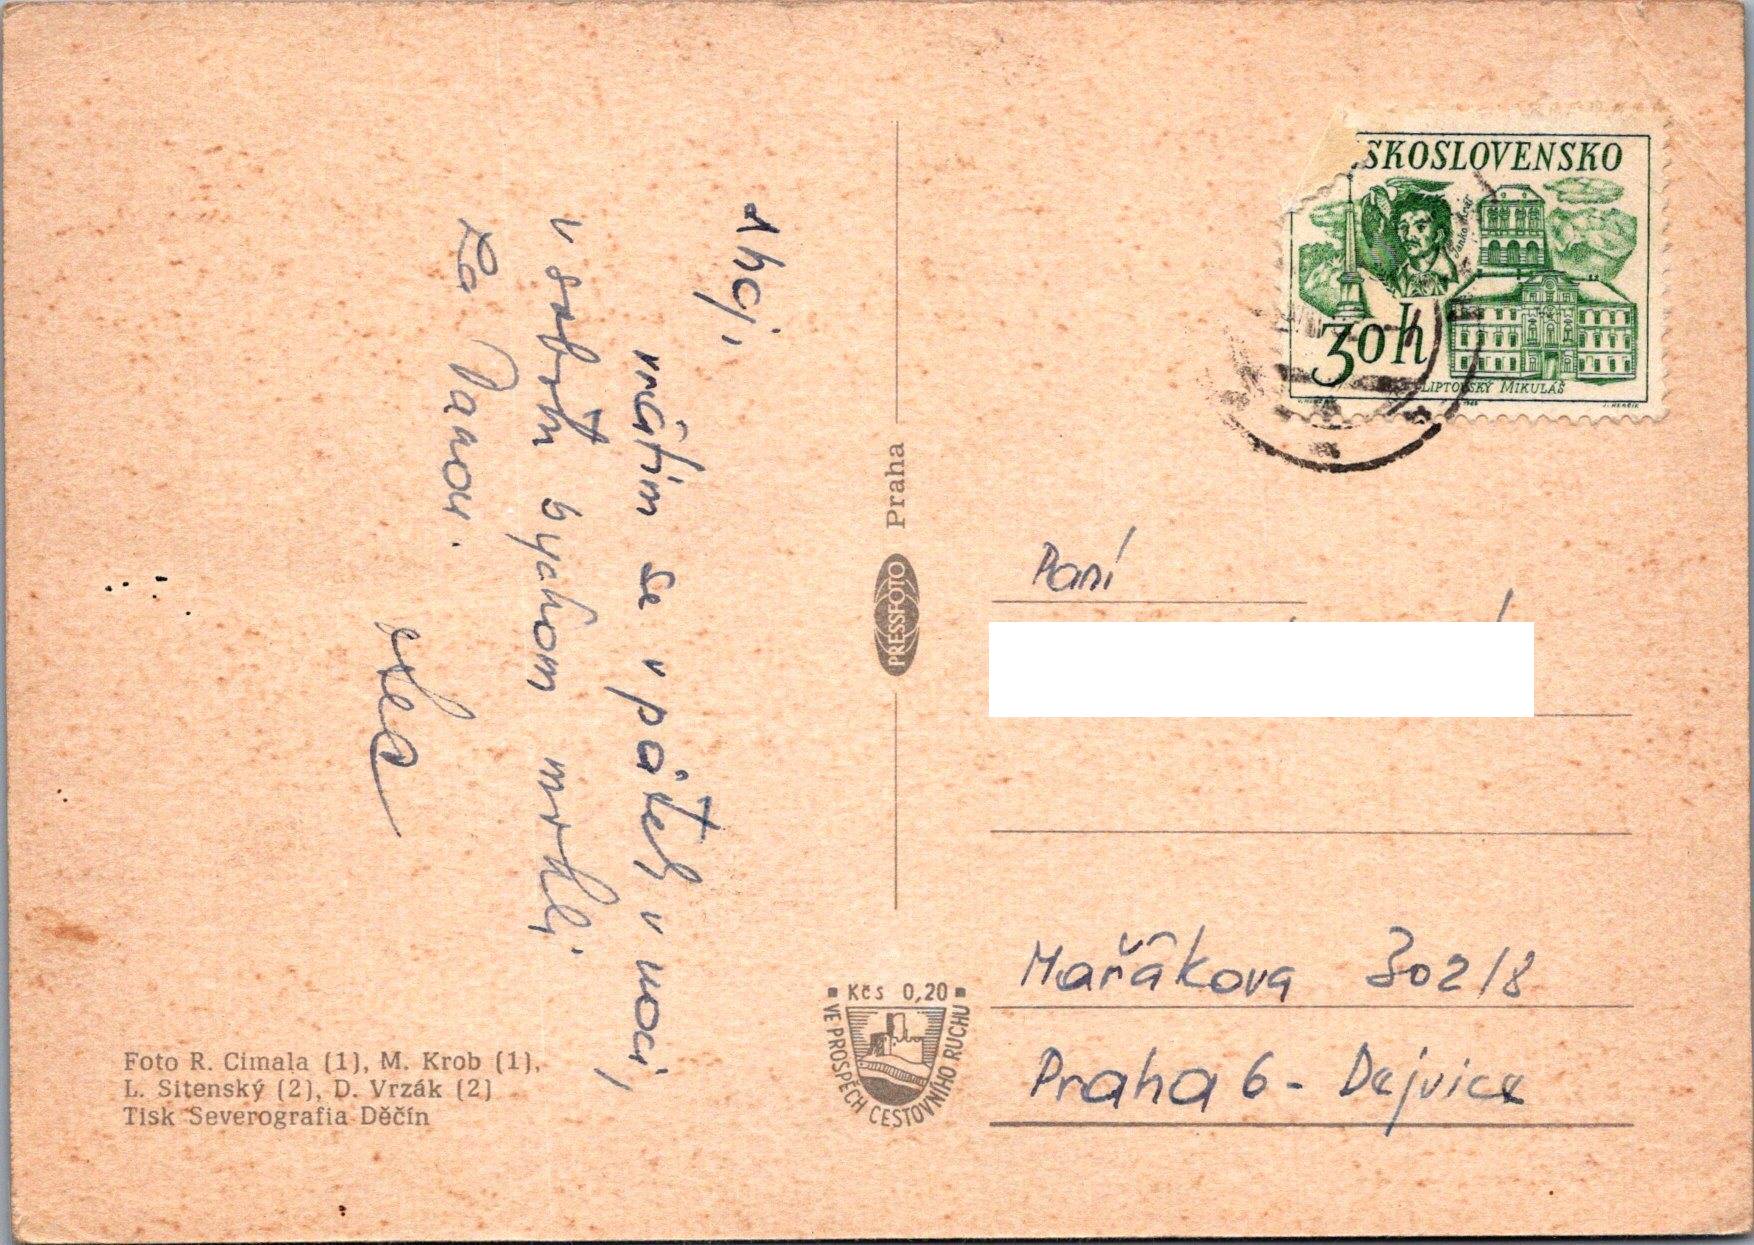 Ahoj,
vrátím se v pátek v noci,
v sobotu bychom mohli
za Danou.
SKOSLOVENSKO
Janko Kráľ
30h
LIPTOVSKÝ MIKULÁŠ
PRESSFOTO Praha
Paní
Mařákova 302/8
Praha 6 - Dejvice
Kčs 0,20
VE PROSPĚCH CESTOVNÍHO RUCHU
Foto R. Cimala (1), M. Krob (1),
L. Sitenský (2), D. Vrzák (2)
Tisk Severografia Děčín